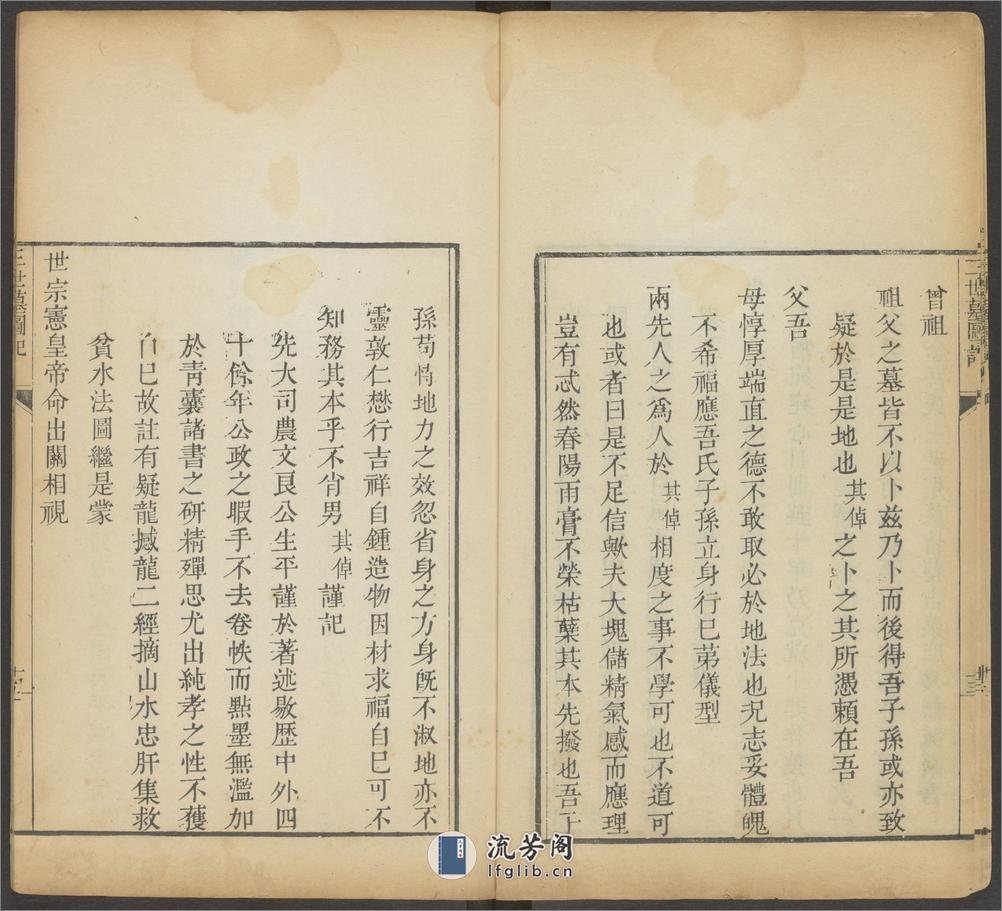 曾祖
祖父之墓皆不以卜茲乃卜而後得吾子孫或亦致
疑於是是地也其倬之卜之其所憑賴在吾
父吾
母惇厚端直之德不敢取必於地法也況志妥體魄
不希福應吾氏子孫立身行已第儀型
兩先人之為人於其倬相度之事不學可也不道可
也或者曰是不足信歟夫大塊儲精氣感而應理
豈有忒然春陽雨膏不榮枯蘖其本先撥也吾子
孫苟恃地力之效忽省身之方身旣不淑地亦不
靈敦仁懋行吉祥自鍾造物因材求福自已可不
知務其本乎不肖男其倬謹記
先大司農文良公生平謹於著述敭歴中外四
十餘年公政之暇手不去卷帙而點墨無濫加
於靑囊諸書之硏精殫思尤出純孝之性不獲
自已故註有疑龍撼龍二經摘山水忠肝集救
貧水法圖繼是蒙
世宗憲皇帝命出關相視
三世墓圖記
流芳阁
lfglib.cn